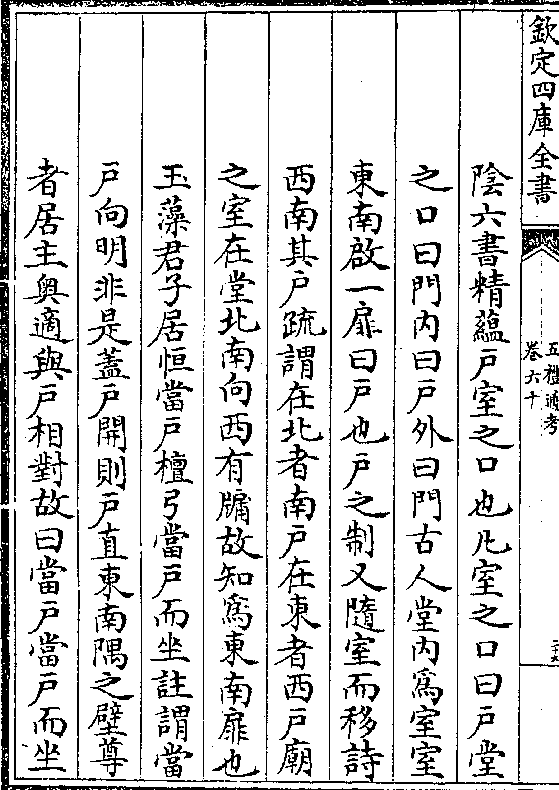 欽定四庫全書
五禮通考
卷六十
陰六書精藴戸室之口也凡室之口曰戸堂
之口曰門内曰戸外曰門古人堂内爲室室
東南啟一扉曰戸也戸之制又隨室而移詩
西南其戸疏謂在北者南戸在東者西戸廟
之室在堂北南向西有牖故知爲東南扉也
玉藻君子居恒當戸檀弓當戸而坐註謂當
戸向明非是蓋戸開則戸直東南隅之壁尊
者居主奥適與戸相對故曰當戸當戸而坐